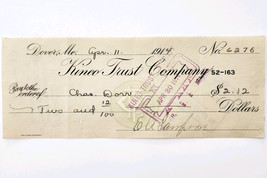 Dover, Me. Apr. 11 1914 No. 6276
Kineo Trust Company 52-163
Pay to the order of Chas. Dorr $2.12
Two and 12/100 Dollars